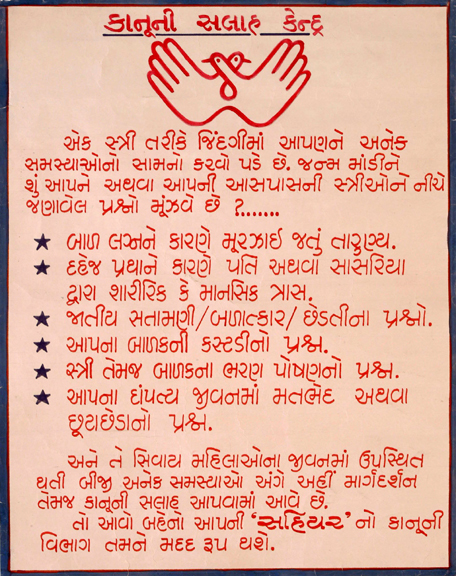 કાનૂની સલાહ કેન્દ્ર
એક સ્ત્રી તરીકે જિંદગીમાં આપણને અનેક
સમસ્યાઓનો સામનો કરવો પડે છે. જન્મ માંડીને
શું આપને અથવા આપની આસપાસની સ્ત્રીઓને નીચે
જણાવેલ પ્રશ્નો મૂંઝવે છે ?.......
★ બાળ લગ્નને કારણે મૂરઝાઇ જતું તારુણ્ય.
★ દહેજ પ્રથાને કારણે પતિ અથવા સાસરિયા
દ્વારા શારીરિક કે માનસિક ત્રાસ.
★ જાતીય સતામણી/બળાત્કાર/ છેડતીના પ્રશ્નો.
★ આપના બાળકની કસ્ટડીનો પ્રશ્ન.
★ સ્ત્રી તેમજ બાળકના ભરણ પોષણનો પ્રશ્ન.
★ આપના દાંપત્ય જીવનમાં મતભેદ અથવા
છૂટાછેડાનો પ્રશ્ન.
અને તે સિવાય મહિલાઓના જીવનમાં ઉપસ્થિત
થતી બીજી અનેક સમસ્યાઓ અંગે અહીં માર્ગદર્શન
તેમજ કાનૂની સલાહ આપવામાં આવે છે.
તો આવો બહેનો આપની ‘સહિયર’ નો કાનૂની
વિભાગ તમને મદદ રૂપ થશે.